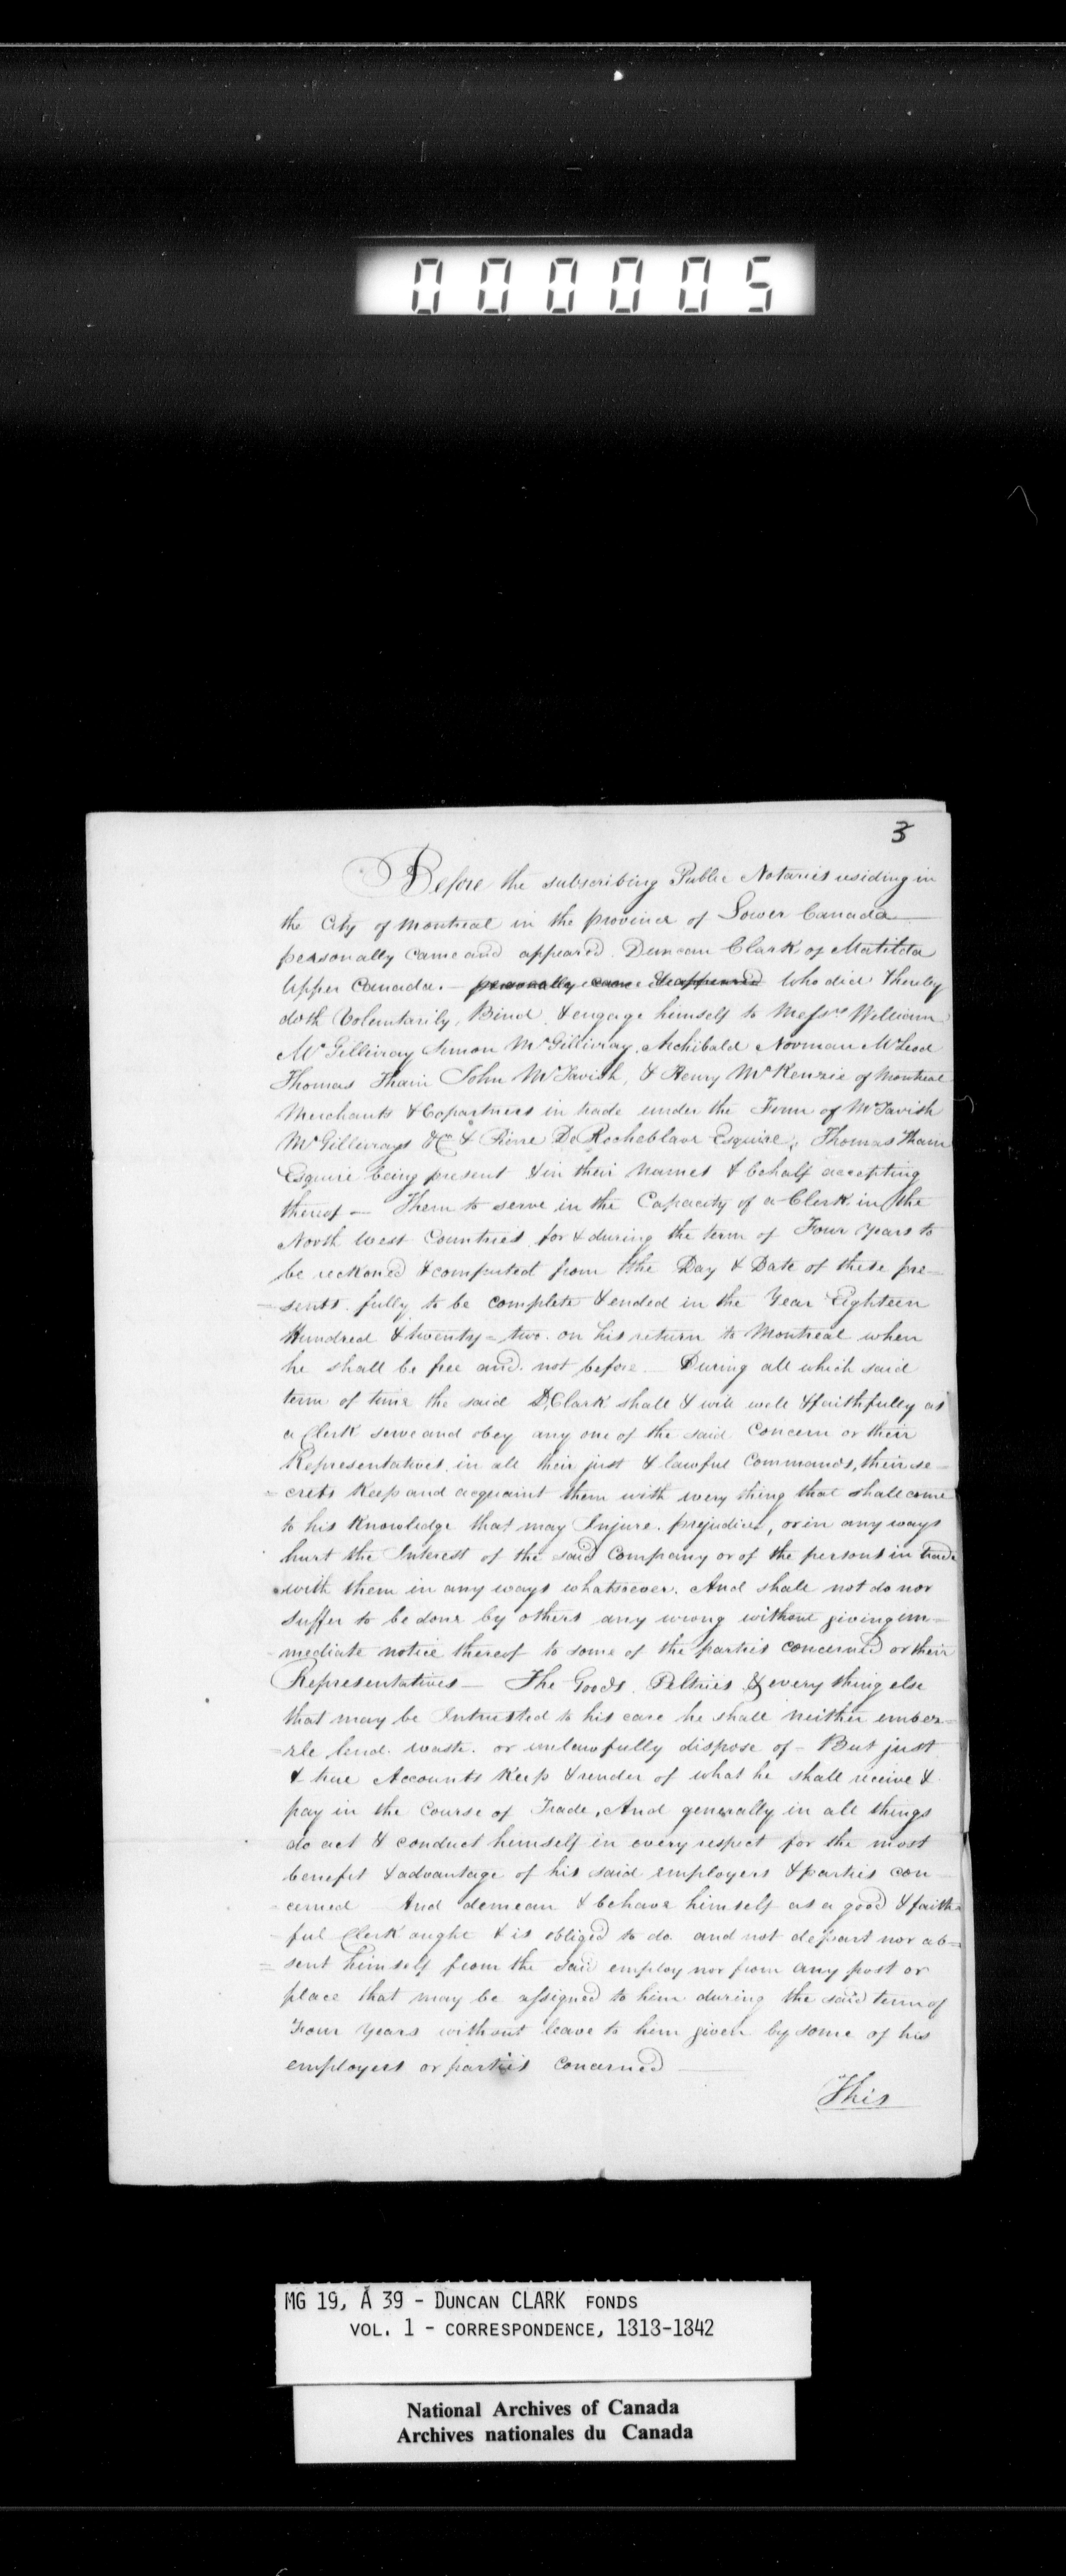 000005
3
Before the subscribing Public Notaries residing in
the City of Montreal in the province of Lower Canada
personally came and appeared Duncan Clark of Matilda
Upper Canada. — personally came & appeared who did & hereby
doth Voluntarily, Bind & engage himself to Messrs William
McGillivray Simon McGillivray, Archibald Norman McLeod
Thomas Thain John McTavish, & Henry McKenzie of Montreal
Merchants & Copartners in trade under the Firm of McTavish
McGillivrays & Co & Pierre De Rocheblave Esquire, Thomas Thain
Esquire being present & in their names & behalf accepting
thereof — Them to serve in the Capacity of a Clerk in the
North West Countries for & during the term of Four years to
be reckoned & computed from the Day & Date of these pre=
=sents fully to be complete & ended in the Year Eighteen
Hundred & twenty=two on his return to Montreal when
he shall be free and not before — During all which said
term of time the said D, Clark shall & will well & faithfully as
a Clerk serve and obey any one of the said Concern or their
Representatives in all their just & lawful Commands, their se=
=crets Keep and acquaint them with every thing that shall come
to his Knowledge that may Injure, prejudice, or in any ways
hurt the Interest of the said Company or of the persons in trade
with them in any ways whatsoever. And shall not do nor
suffer to be done by others any wrong without giving im=
=mediate notice thereof to some of the parties concerned or their
Representatives — The Goods, Peltries & every thing else
that may be Intrusted to his care he shall neither embez=
=zle lend waste or unlawfully dispose of — But just
& true Accounts Keep & render of what he shall receive &
pay in the Course of Trade, And generally in all things
do act & conduct himself in every respect for the most
benefit & advantage of his said employers & parties con
=cerned And demean & behave himself as a good & faith=
=ful Clerk ought & is obliged to do and not depart nor ab=
=sent himself from the said employ nor from any post or
place that may be assigned to him during the said term of
Four years without leave to him given by some of his
employers or parties concerned —
This
MG 19, A 39 - DUNCAN CLARK FONDS
VOL. 1 - CORRESPONDENCE, 1818-1842
National Archives of Canada
Archives nationales du Canada